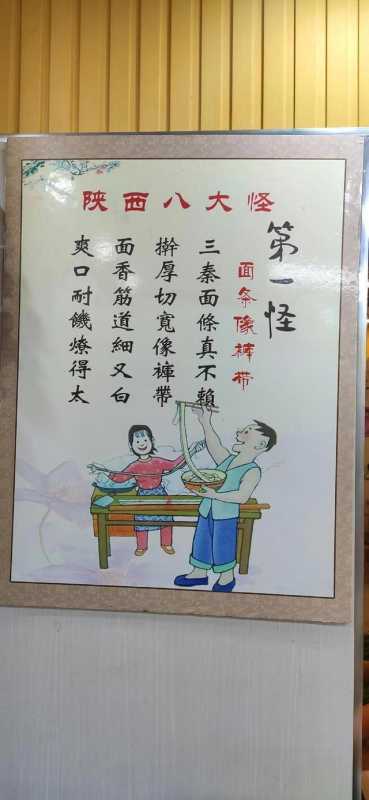 陕西八大怪
第一怪
面条像裤带
三秦面條真不賴
擀厚切寬像褲帶
面香筋道細又白
爽口耐饑燎得太